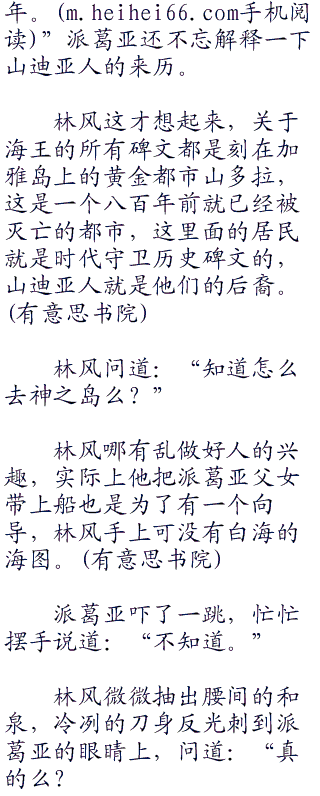 年。(m.heihei66.com手机阅
读)”派葛亚还不忘解释一下
山迪亚人的来历。
林风这才想起来，关于
海王的所有碑文都是刻在加
雅岛上的黄金都市山多拉，
这是一个八百年前就已经被
灭亡的都市，这里面的居民
就是时代守卫历史碑文的，
山迪亚人就是他们的后裔。
(有意思书院)
林风问道：“知道怎么
去神之岛么？”
林风哪有乱做好人的兴
趣，实际上他把派葛亚父女
带上船也是为了有一个向
导，林风手上可没有白海的
海图。(有意思书院)
派葛亚吓了一跳，忙忙
摆手说道：“不知道。”
林风微微抽出腰间的和
泉，冷冽的刀身反光刺到派
葛亚的眼睛上，问道：“真
的么？